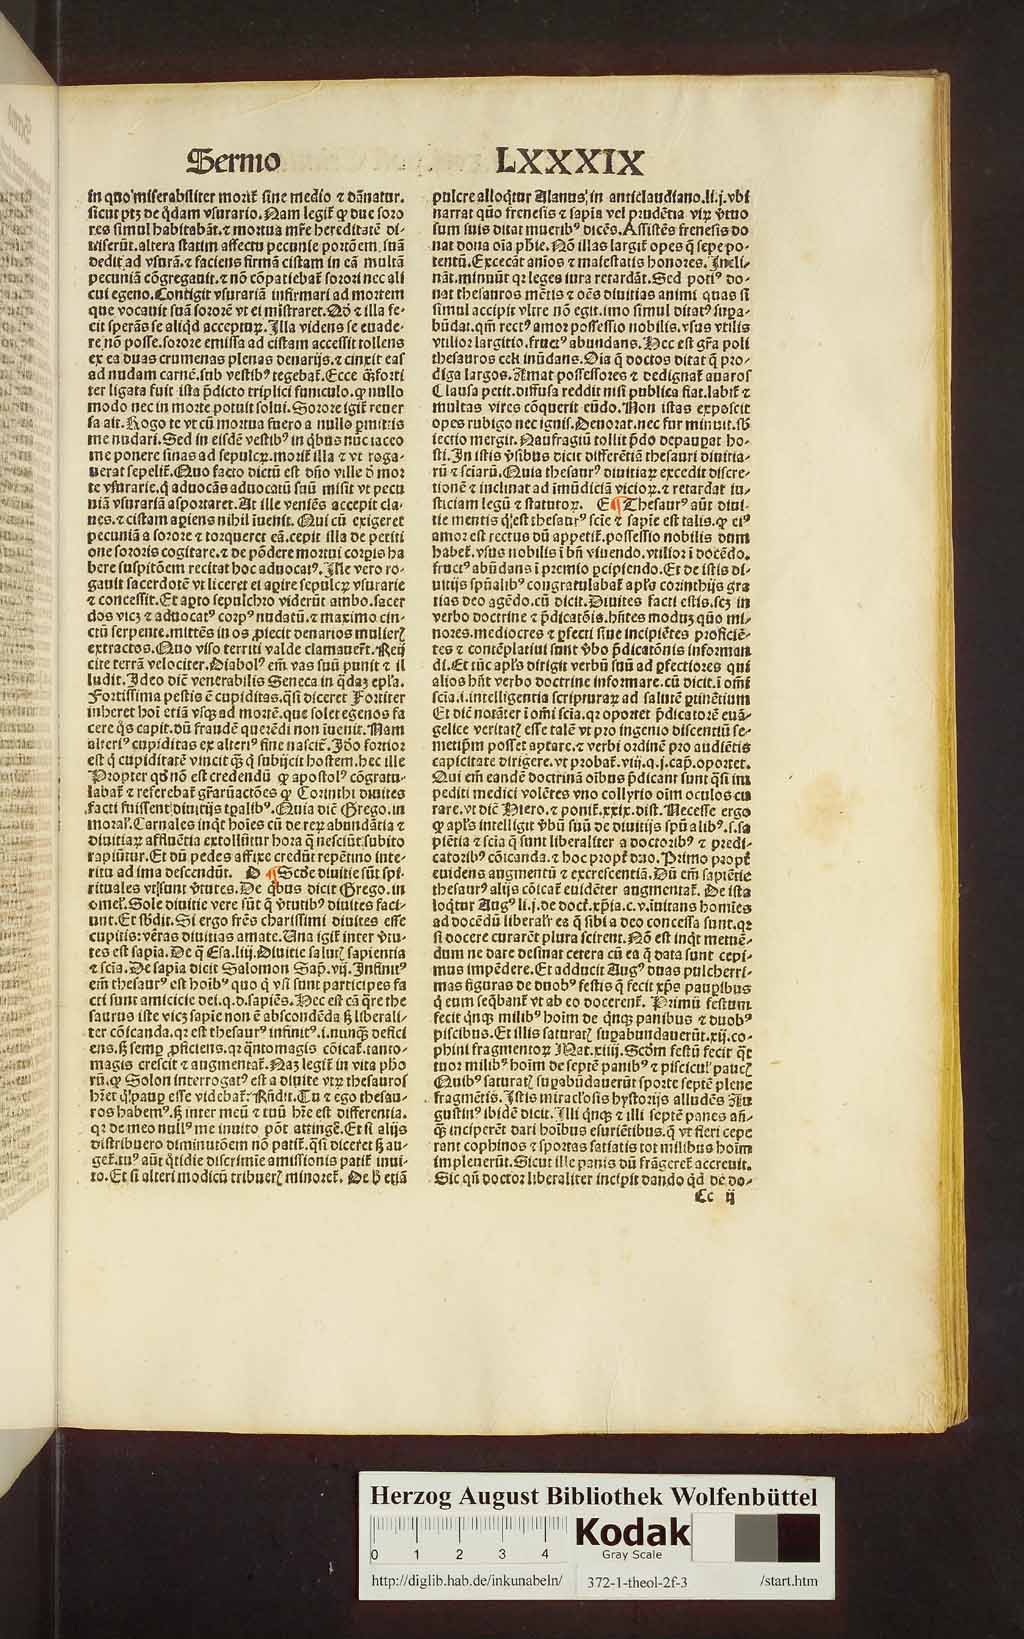 Sermo LXXXIX
in quo miserabiliter morit̄ sine medio ⁊ dānatur.
sicut ptꝫ de q̄dam vsurario. Nam legit̄ ꝙ due soro
res simul habitabāt. ⁊ mortua mr̄e hereditatē di-
uiserūt. altera statim affectu pecunie portōem suā
dedit ad vsurā. ⁊ faciens firmā cistam in eā multā
pecuniā cōgregauit. ⁊ nō cōpatiebat̄ sorori nec ali
cui egeno. Contigit vsurariā infirmari ad mortem
que vocauit suā sororē vt ei mīstraret. Qđ ⁊ illa fe-
cit sperās se aliqđ acceptuꝝ. Illa videns se euade-
re nō posse. sorore emissa ad cistam accessit tollens
ex ea duas crumenas plenas denarijs. ⁊ cinxit eas
ad nudam carnē. sub vestibꝰ tegebat̄. Ecce q̄ forti
ter ligata fuit ista p̄dicto triplici funiculo. ꝙ nullo
modo nec in morte potuit solui. Sorore igit̄ reuer
sa ait. Rogo te vt cū mortua fuero a nullo ꝑmittas
me nudari. Sed in eisdē vestibꝰ in qͥbus nūc iaceo
me ponere sinas ad sepulcꝝ. morit̄ illa ⁊ vt roga-
uerat sepelit̄. Quo facto dictū est dn̄o ville đ mor
te vsurarie. q̄ aduocās aduocatū suū misit vt pecu
niā vsurariā asportaret. At ille veniēs accepit cla-
ues. ⁊ cistam aꝑiens nihil īuenit. Qui cū exigeret
pecuniā a sorore ⁊ torqueret eā. cepit illa de petiti
one sororis cogitare. ⁊ de pōdere mortui corpis ha
bere suspitōem recitat hoc aduocatꝰ. Ille vero ro-
gauit sacerdotē vt liceret ei aꝑire sepulcꝝ vsurarie
⁊ concessit. Et aꝑto sepulchro viderūt ambo. sacer
dos vicꝫ ⁊ aduocatꝰ corpꝰ nudatū. ⁊ maximo cin-
ctū serpente. mittēs in os ꝓiecit denarios mulieꝝ
extractos. Quo viso territi valde clamauer̄t. Reij
cite terrā velociter. Diabolꝰ em̄ vas suū punit ⁊ il
ludit. Ideo diē venerabilis Seneca in q̄daꝫ epl̄a.
Fortissima pestis ē cupiditas. q̄si diceret Fortiter
inheret hoī etiā vsqꝫ ad mortē. que solet egenos fa
cere q̄s capit. dū fraudē querēdi non īuenit. Nam
alteriꝰ cupiditas ex alteriꝰ fine nascit̄. Iđo fortior
est q̄ cupiditatē vincit qꝫ q̄ subijcit hostem. hec ille
Propter qđ nō est credendū ꝙ apostolꝰ cōgratu-
labat̄ ⁊ referebat gr̄arūactōes ꝙ Corinthi diuites
facti fuissent diuitijs tꝑalibꝰ. Quia diē Grego. in
moral̄. Carnales inq̄t hoīes cū de reꝝ abundātia ⁊
diuitiaꝝ affluētia extollūtur hora q̄ nesciūt subito
rapiūtur. Et dū pedes affixe credūt repētino inte-
ritu ad ima descendūt. D ¶ Scđe diuitie sūt spi-
rituales vtꝫ sunt v̄tutes. De qͥbus dicit Grego. in
omel̄. Sole diuitie vere sūt q̄ v̄tutibꝰ diuites faci-
unt. Et sb̄dit. Si ergo fr̄es charissimi diuites esse
cupitis: veras diuitias amate. Una igit̄ inter v̄tu-
tes est sapīa. De q̄ Esa. liij. Diuitie salutꝫ sapientia
⁊ scīa. De sapīa dicit Salomon Sap̄. vij. Infinitꝰ
em̄ thesaurꝰ est hoībꝰ quo q̄ vsi sunt participes fa
cti sunt amicicie dei. q. d. sapiēs. Hec est cā q̄re the
saurus iste vicꝫ sapīe non ē abscondēda sꝫ liberali-
ter cōicanda. qꝛ est thesaurꝰ infinitꝰ. i. nunqꝫ defici
ens. sꝫ semꝑ ꝓficiens. qꝛ q̄ntomagis cōicat̄. tanto-
magis crescit ⁊ augmentat̄. Naꝫ legit̄ in vita pho
rū. ꝙ Solon interrogatꝰ est a diuite vtꝝ thesauros
hr̄et q̄ pauꝑ esse videbat̄: Rn̄dit. Tu ⁊ ego thesau-
ros habemꝰ. sꝫ inter meū ⁊ tuū hr̄e est differentia.
qꝛ de meo nullꝰ me inuito pōt attingē. Et si alijs
distribuero diminutōem nō patit̄. q̄si diceret sꝫ au-
get̄. tuꝰ aūt q̄tidie discrimīe amissionis patit̄ inui-
to. Et si alteri modicū tribueꝝ minoret̄. De h̄ etiā
pulcre alloqͥtur Alanus in anticlaudiano. li. j. vbi
narrat quō frenesis ⁊ sapīa vel prudētia viꝝ v̄tuo
sum suis ditat muneribꝰ dicēs. Assistēs frenesis do
nat dona oīa ph̄ie. Nō illas largit̄ opes q̄ sepe po-
tentū. Excecāt anīos ⁊ maiestatis honores. Incli-
nāt. minuūt qꝛ leges iura retardāt. Sed potiꝰ do-
nat thesauros mētis ⁊ oēs diuitias animi quas si
simul accipit vltre nō egit. imo simul ditatꝰ suꝑa-
būdat. qm̄ rectꝰ amor possessio nobilis. vsus vtilis
vtilior largitio. fructꝰ abundans. Hec est gr̄a poli
thesauros celi inūdans. Oīa q̄ doctos ditat q̄ pro-
diga largos. Amat possessores ⁊ dedignat̄ auaros
Clausa petit. diffusa reddit nisi publica fiat. labit̄ ⁊
multas vires cōquerit eūdo. Non istas exposcit
opes rubigo nec ignis. Deuorat. nec fur minuit. sb̄
iectio mergit. Naufragiū tollit p̄do depauꝑat ho-
sti. In istis v̄sibus dicit differētiā thesauri diuitia-
rū ⁊ sciarū. Quia thesaurꝰ diuitiaꝝ excedit discre-
tionē ⁊ inclinat ad īmūdiciā vicioꝝ. ⁊ retardat iu-
sticiam legū ⁊ statutoꝝ. E ¶ Thesaurꝰ aūt diui-
tie mentis q̄ est thesaurꝰ scīe ⁊ sapīe est talis. ꝙ eiꝰ
amor est rectus dū appetit̄. possessio nobilis dum
habet̄. vsus nobilis ī bn̄ viuendo. vtilior ī docēdo.
fructꝰ abūdans ī premio ꝑcipiendo. Et de istis di-
uitijs spūalibꝰ congratulabat̄ apl̄s corinthijs gra
tias deo agēdo. cū dicit. Diuites facti estis. scꝫ in
verbo doctrine ⁊ p̄dicatōis. hn̄tes moduꝫ quō mi-
nores. mediocres ⁊ ꝑfecti siue incipiētes proficiē-
tes ⁊ contēplatiui sunt v̄bo p̄dicatōnis informan
di. Et tūc apl̄s dirigit verbū suū ad ꝑfectiores qui
alios hn̄t verbo doctrine informare. cū dicit. ī om̄i
scīa. i. intelligentia scripturaꝝ ad salutē ꝑtinētium
Et diē notāter ī om̄i scīa. qꝛ oportet p̄dicatorē euā-
gelice veritatꝫ esse talē vt pro ingenio discentiū se-
metip̄m posset aptare. ⁊ verbi ordinē pro audiētis
capicitate dirigere. vt probat̄. viij. q. j. cap̄. oportet.
Qui em̄ eandē doctrinā oībus p̄dicant sunt q̄si im
pediti medici volētes vno collyrio oīm oculos cu
rare. vt diē Hiero. ⁊ ponit̄. xxix. dist. Necesse ergo
ꝙ apl̄s intelligit v̄bū suū de diuitijs spūalibꝰ. s. sa
piētia ⁊ scīa q̄ sunt liberaliter a doctoribꝰ ⁊ predi-
catoribꝰ cōicanda. ⁊ hoc propt̄ duo. Primo propt̄
euidens augmentū ⁊ excrescentiā. Dū em̄ sapiētie
thesaurꝰ alijs cōicat̄ euidēter augmentat̄. De ista
loqͥtur Augꝰ li. j. de doct̄. xp̄ia. c. v. īuitans homīes
ad docēdū liberal̄r ea q̄ sibi a deo concessa sunt. qꝛ
si docere curarēt plura scirent. Nō est inqͥt metuē-
dum ne dare desinat cetera cū ea q̄ data sunt cepi-
mus impēdere. Et adducit Augꝰ duas pulcherri-
mas figuras de duobꝰ festis q̄ fecit xp̄s pauꝑibus
q̄ eum seq̄bant̄ vt ab eo docerent̄. Primū festum
fecit qͥnqꝫ milibꝰ hoīm de qͥnqꝫ panibus ⁊ duobꝰ
piscibus. Et illis saturatꝫ suꝑabundauerūt. xij. co-
phini fragmentoꝝ Mat. xiiij. Scđm festū fecit q̄t
tuor milibꝰ hoīm de septē panibꝰ ⁊ pisciculꝰ paucꝫ
Quibꝰ saturatꝫ suꝑabūdauerūt sporte septē plene
fragmētis. Istis miracl̄osis hystorijs alludēs Au
gustinꝰ ibidē dicit. Illi qͥnqꝫ ⁊ illi septē panes an̄-
q̄ꝫ inciperēt dari hoībus esuriētibus. q̄ vt fieri cepe
rant cophinos ⁊ sportas satiatis tot milibus hoīm
impleuerūt. Sicut ille panis dū frāgeret̄ accreuit.
Sic qn̄ doctor liberaliter incipit dando qđ de do-
Cc ij
Herzog August Bibliothek Wolfenbüttel
0 1 2 3 4
Kodak
Gray Scale
http://diglib.hab.de/inkunabeln/ 372-1-theol-2f-3 /start.htm